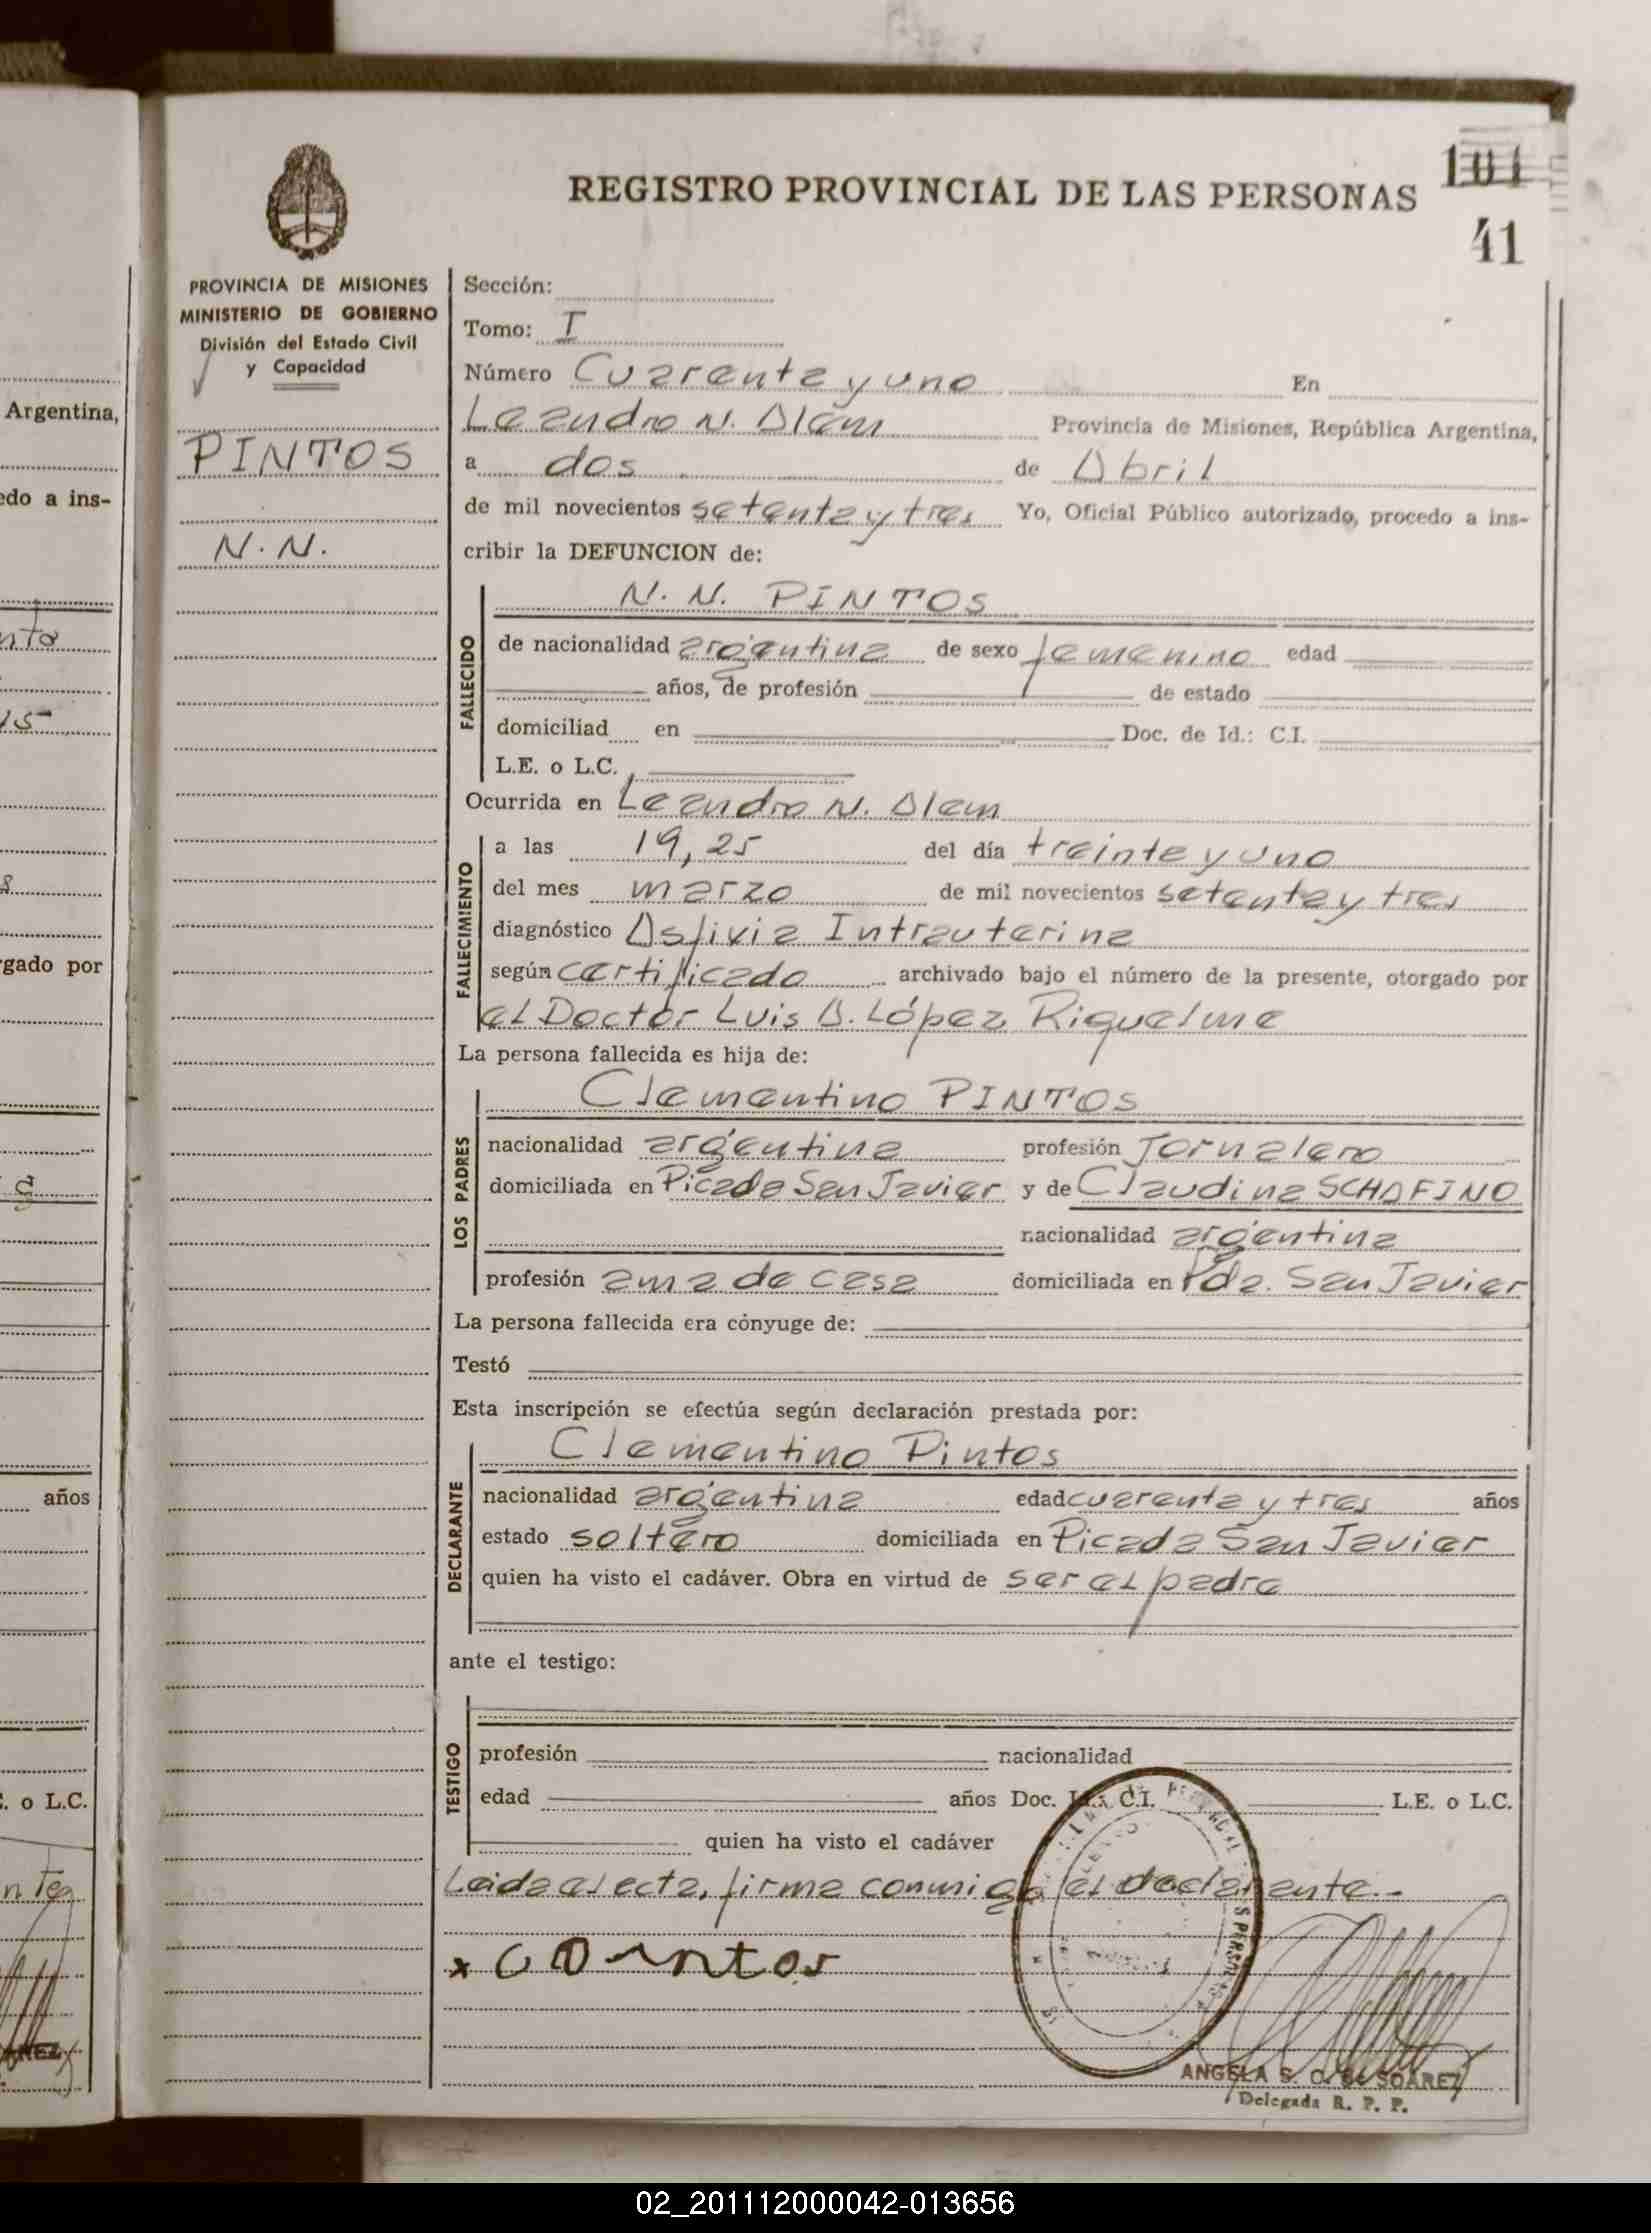 REGISTRO PROVINCIAL DE LAS PERSONAS
101
41
PROVINCIA DE MISIONES
MINISTERIO DE GOBIERNO
División del Estado Civil
y Capacidad
PINTOS
N. N.
Sección:
Tomo: I
Número Cuarenta y uno En
Leandro N. Alem Provincia de Misiones, República Argentina,
a dos de Abril
de mil novecientos setenta y tres Yo, Oficial Público autorizado, procedo a ins-
cribir la DEFUNCION de:
FALLECIDO
N. N. PINTOS
de nacionalidad argentina de sexo femenino edad
años, de profesión de estado
domiciliad en Doc. de Id.: C.I.
L.E. o L.C.
Ocurrida en Leandro N. Alem
FALLECIMIENTO
a las 19,25 del día treinta y uno
del mes marzo de mil novecientos setenta y tres
diagnóstico Asfixia Intrauterina
según certificado archivado bajo el número de la presente, otorgado por
el Doctor Luis A. López Riquelme
La persona fallecida es hija de:
LOS PADRES
Clementino PINTOS
nacionalidad argentina profesión Jornalero
domiciliada en Picada San Javier y de Claudina SCHAFINO
nacionalidad argentina
profesión ama de casa domiciliada en Pda. San Javier
La persona fallecida era cónyuge de:
Testó
Esta inscripción se efectúa según declaración prestada por:
DECLARANTE
Clementino Pintos
nacionalidad argentina edad cuarenta y tres años
estado soltero domiciliada en Picada San Javier
quien ha visto el cadáver. Obra en virtud de ser el padre
ante el testigo:
TESTIGO
profesión nacionalidad
edad años Doc. Id.: C.I. L.E. o L.C.
quien ha visto el cadáver
Leida el acta, firma conmigo el declarante.-
ANGELA S. C. de SOAREZ
Delegada R. P. P.
Argentina,
edo a ins-
gado por
años
o L.C.
02_201112000042-013656